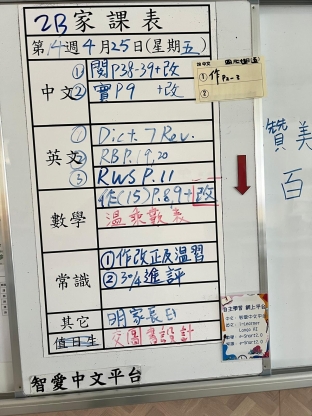 2B家課表
第14週4月25日(星期五)
中文
①閱P38-39+改
②寶P9 +改
①作P2-3
②
英文
①Dict. 7 Rev.
②RB P.19,20
③RWS P.11
數學
作(15)P.8,9+改
溫乘數表
常識
①作改正及溫習
②30/4進評
其它
明家長日
值日生
交圖書設計
自主學習網上平台
智愛中文平台
讚美
百